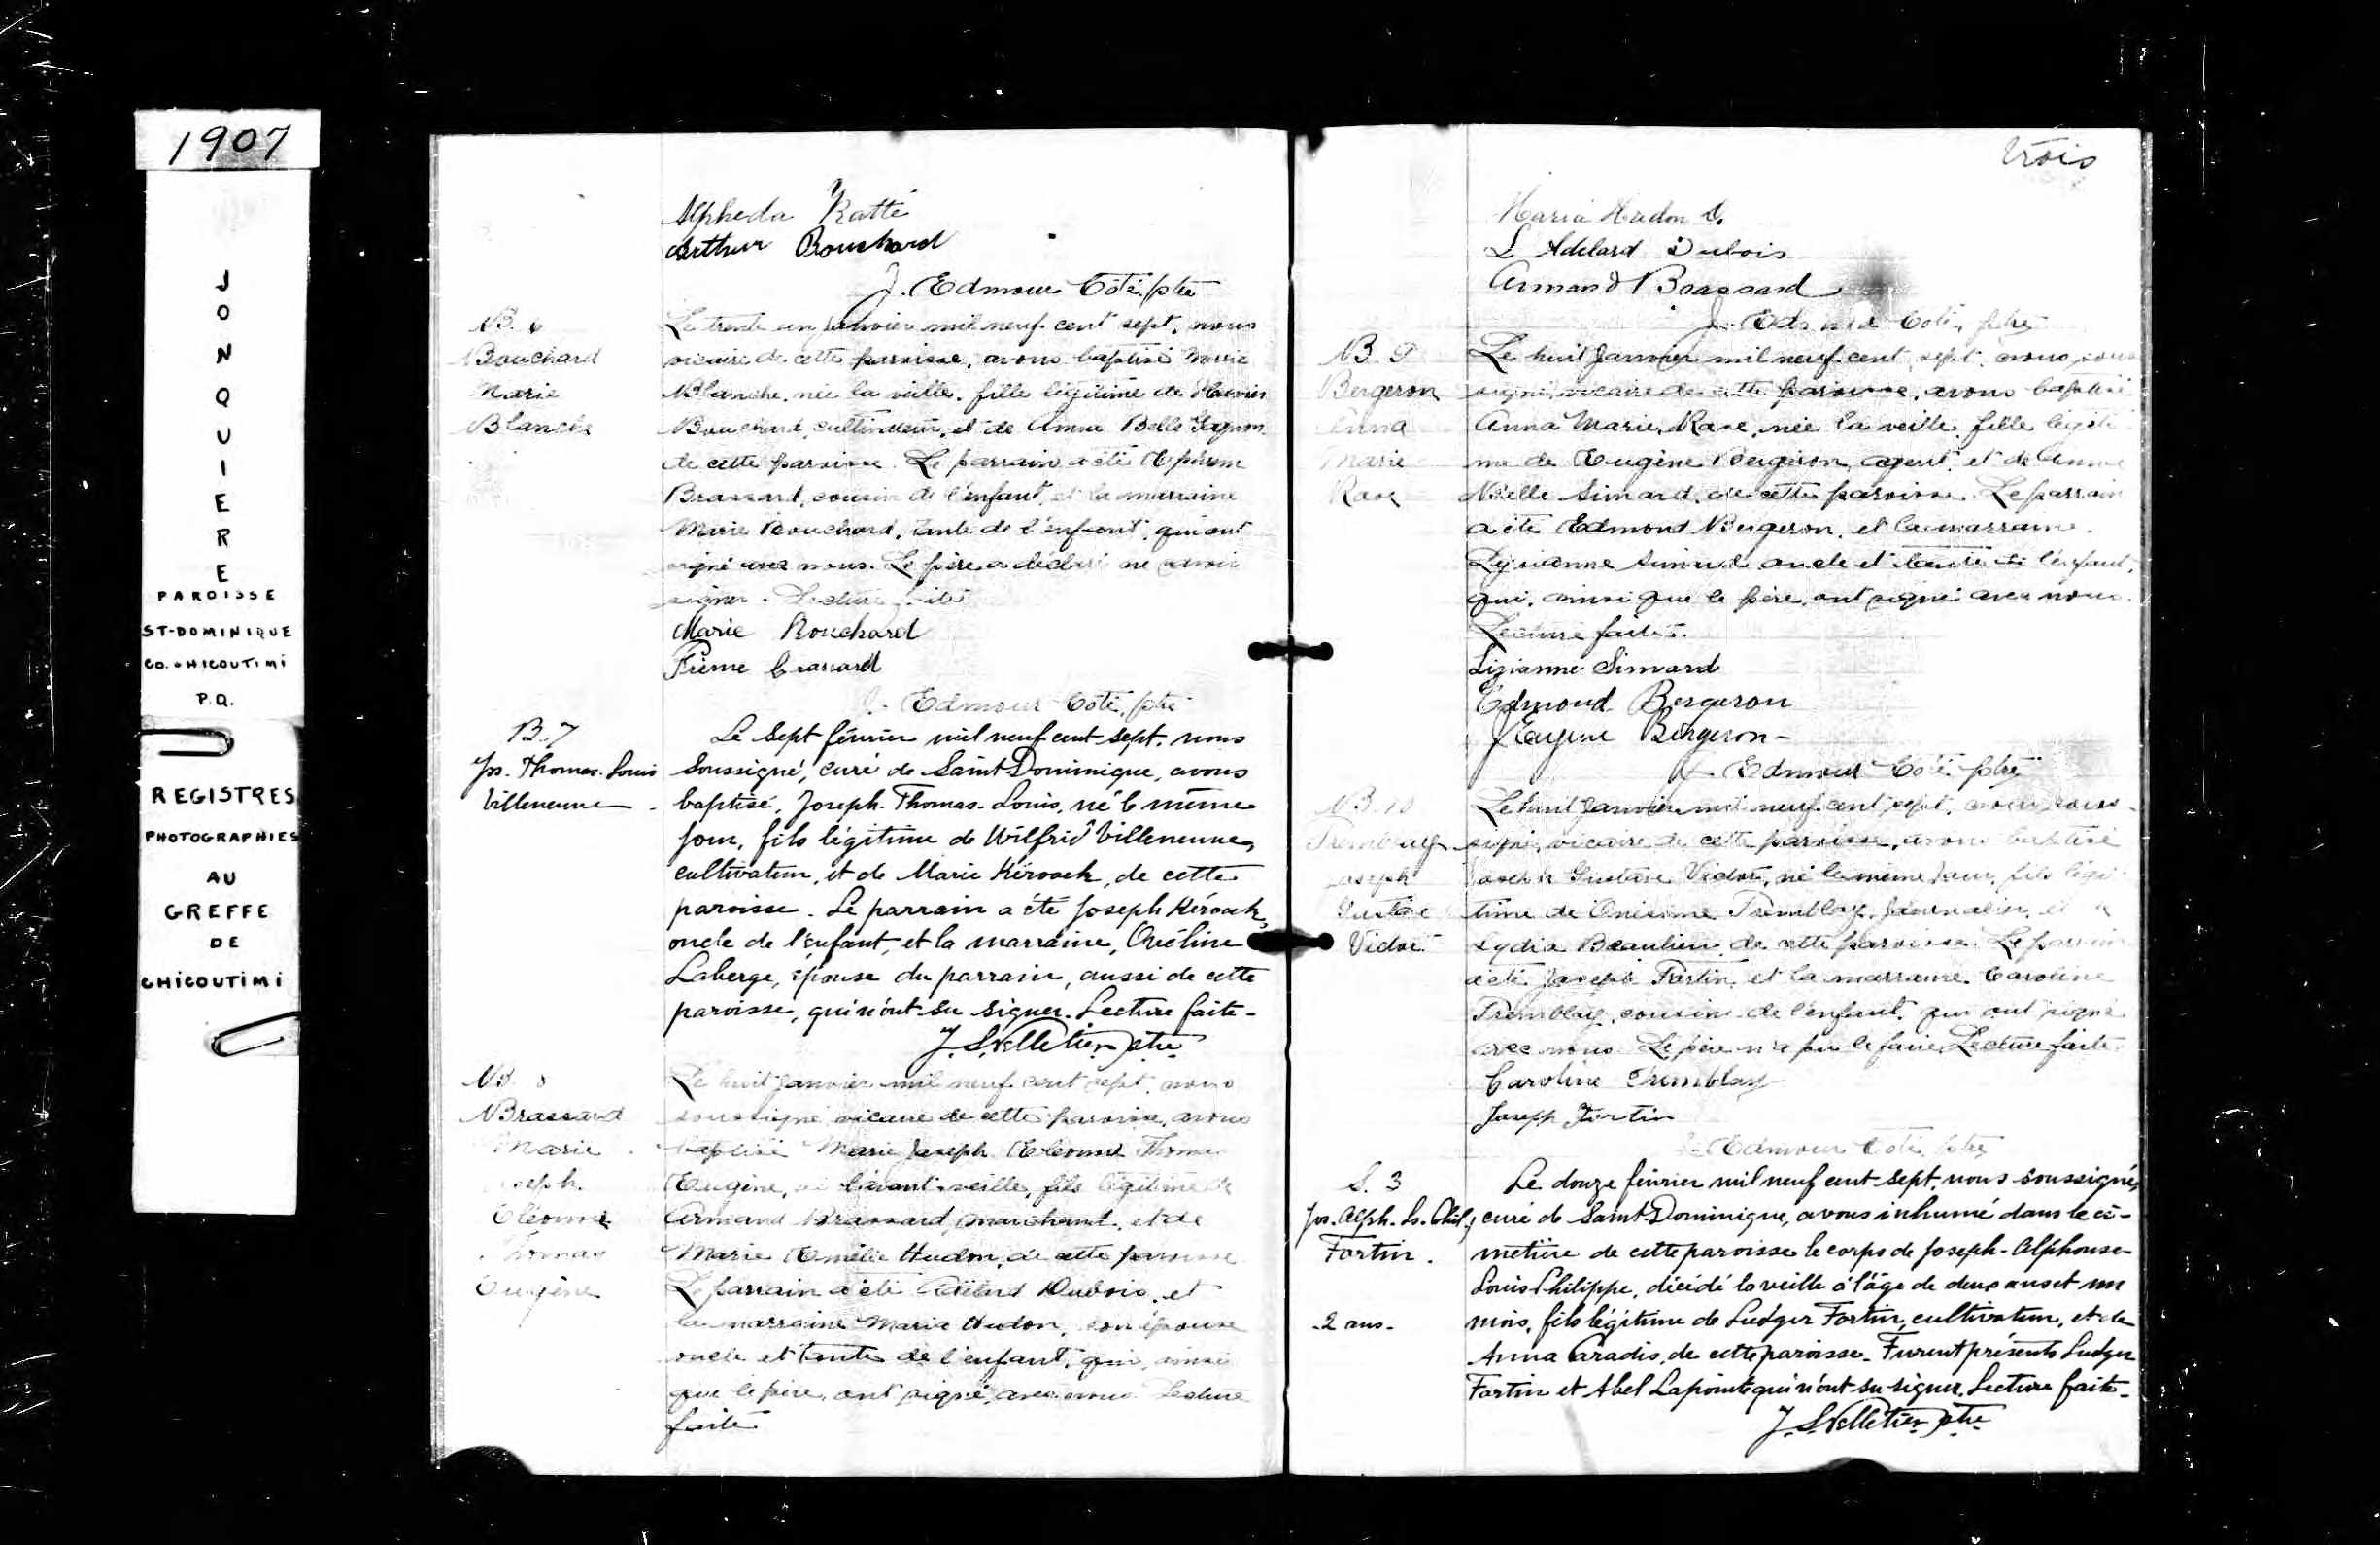 1907
JONQUIERE
PAROISSE
ST-DOMINIQUE
CO. CHICOUTIMI
P.Q.
REGISTRES
PHOTOGRAPHIES
AU
GREFFE
DE
CHICOUTIMI
Alpheda Ratté
Arthur Bouchard
J. Edmour Côté, ptre
B. 6
Bouchard
Marie
Blanche
Le trente un janvier mil neuf cent sept, nous
vicaire de cette paroisse, avons baptisé Marie
Blanche, née la veille, fille légitime de
Bouchard, cultivateur, et de Anna Belle Gagnon
de cette paroisse. Le parrain a été
Brassard, cousin de l'enfant, et la marraine
Marie Bouchard, tante de l'enfant, qui ont
signé avec nous. Le père a déclaré ne savoir
signer. Lecture faite
Marie Bouchard
Brassard
J. Edmour Côté, ptre
B. 7
Jos. Thomas. Louis
Villeneuve
Le sept février mil neuf cent sept, nous
soussigné, curé de Saint-Dominique, avons
baptisé, Joseph-Thomas-Louis, né le même
jour, fils légitime de Wilfrid Villeneuve,
cultivateur, et de Marie Kéroack, de cette
paroisse. Le parrain a été Joseph Kéroack,
oncle de l'enfant, et la marraine,
Laberge, épouse du parrain, aussi de cette
paroisse, qui n'ont su signer. Lecture faite-
J. S. Pelletier, ptre
B. 8
Brassard
Marie
Joseph
Eléonne
Thomas
Eugène
Le huit janvier mil neuf cent sept, nous
soussigné vicaire de cette paroisse, avons
baptisé Marie Joseph Thomas
Eugène, né l'avant-veille, fils légitime de
Armand Brassard, marchand, et de
Marie Emélie Hudon, de cette paroisse
Le parrain a été Adélard Dubois, et
la marraine Maria Hudon, son épouse
oncle et tante de l'enfant, qui, ainsi
que le père, ont signé avec nous. Lecture
faite
trois
Maria Hudon D.
L Adelard Dubois
Armand Brassard
J. Edmour Côté, ptre
B. 9
Bergeron
Anna
Marie
Rose
Le huit janvier mil neuf cent sept, nous sous
signé, vicaire de cette paroisse, avons baptisé
Anna Marie, Rose, née la veille, fille légiti-
me de Eugène Bergeron, agent, et de Anna
Simard, de cette paroisse. Le parrain
a été Edmond Bergeron, et la marraine
Simard oncle et tante de l'enfant,
qui, ainsi que le père, ont signé avec nous.
Lecture faite.
Lizianne Simard
Edmond Bergeron
J Eugène Bergeron-
J. Edmour Côté, ptre
B. 10
Tremblay
Joseph
Gustave
Le huit janvier mil neuf cent sept, nous sous-
signé, vicaire de cette paroisse, avons baptisé
Joseph Gustave, né le même jour, fils légi-
time de Onésime Tremblay, journalier, et de
Lydia Beaulieu, de cette paroisse. Le parrain
a été Joseph Fortin, et la marraine Caroline
Tremblay, cousine de l'enfant, qui ont signé
avec nous. Le père n'a pu le faire. Lecture faite.
Caroline Tremblay
Joseph Fortin
J. Edmour Côté, ptre
S. 3
Jos. Alph. Ls. Phil.
Fortin.
2 ans.
Le douze février mil neuf cent sept, nous soussigné,
curé de Saint-Dominique, avons inhumé dans le ci-
metière de cette paroisse le corps de Joseph-Alphonse-
Louis-Philippe, décédé la veille à l'âge de deux ans et un
mois, fils légitime de Ludger Fortin, cultivateur, et de
Anna Paradis, de cette paroisse. Furent présents Ludger
Fortin et Abel Lapointe qui n'ont su signer. Lecture faite-
J. S. Pelletier, ptre